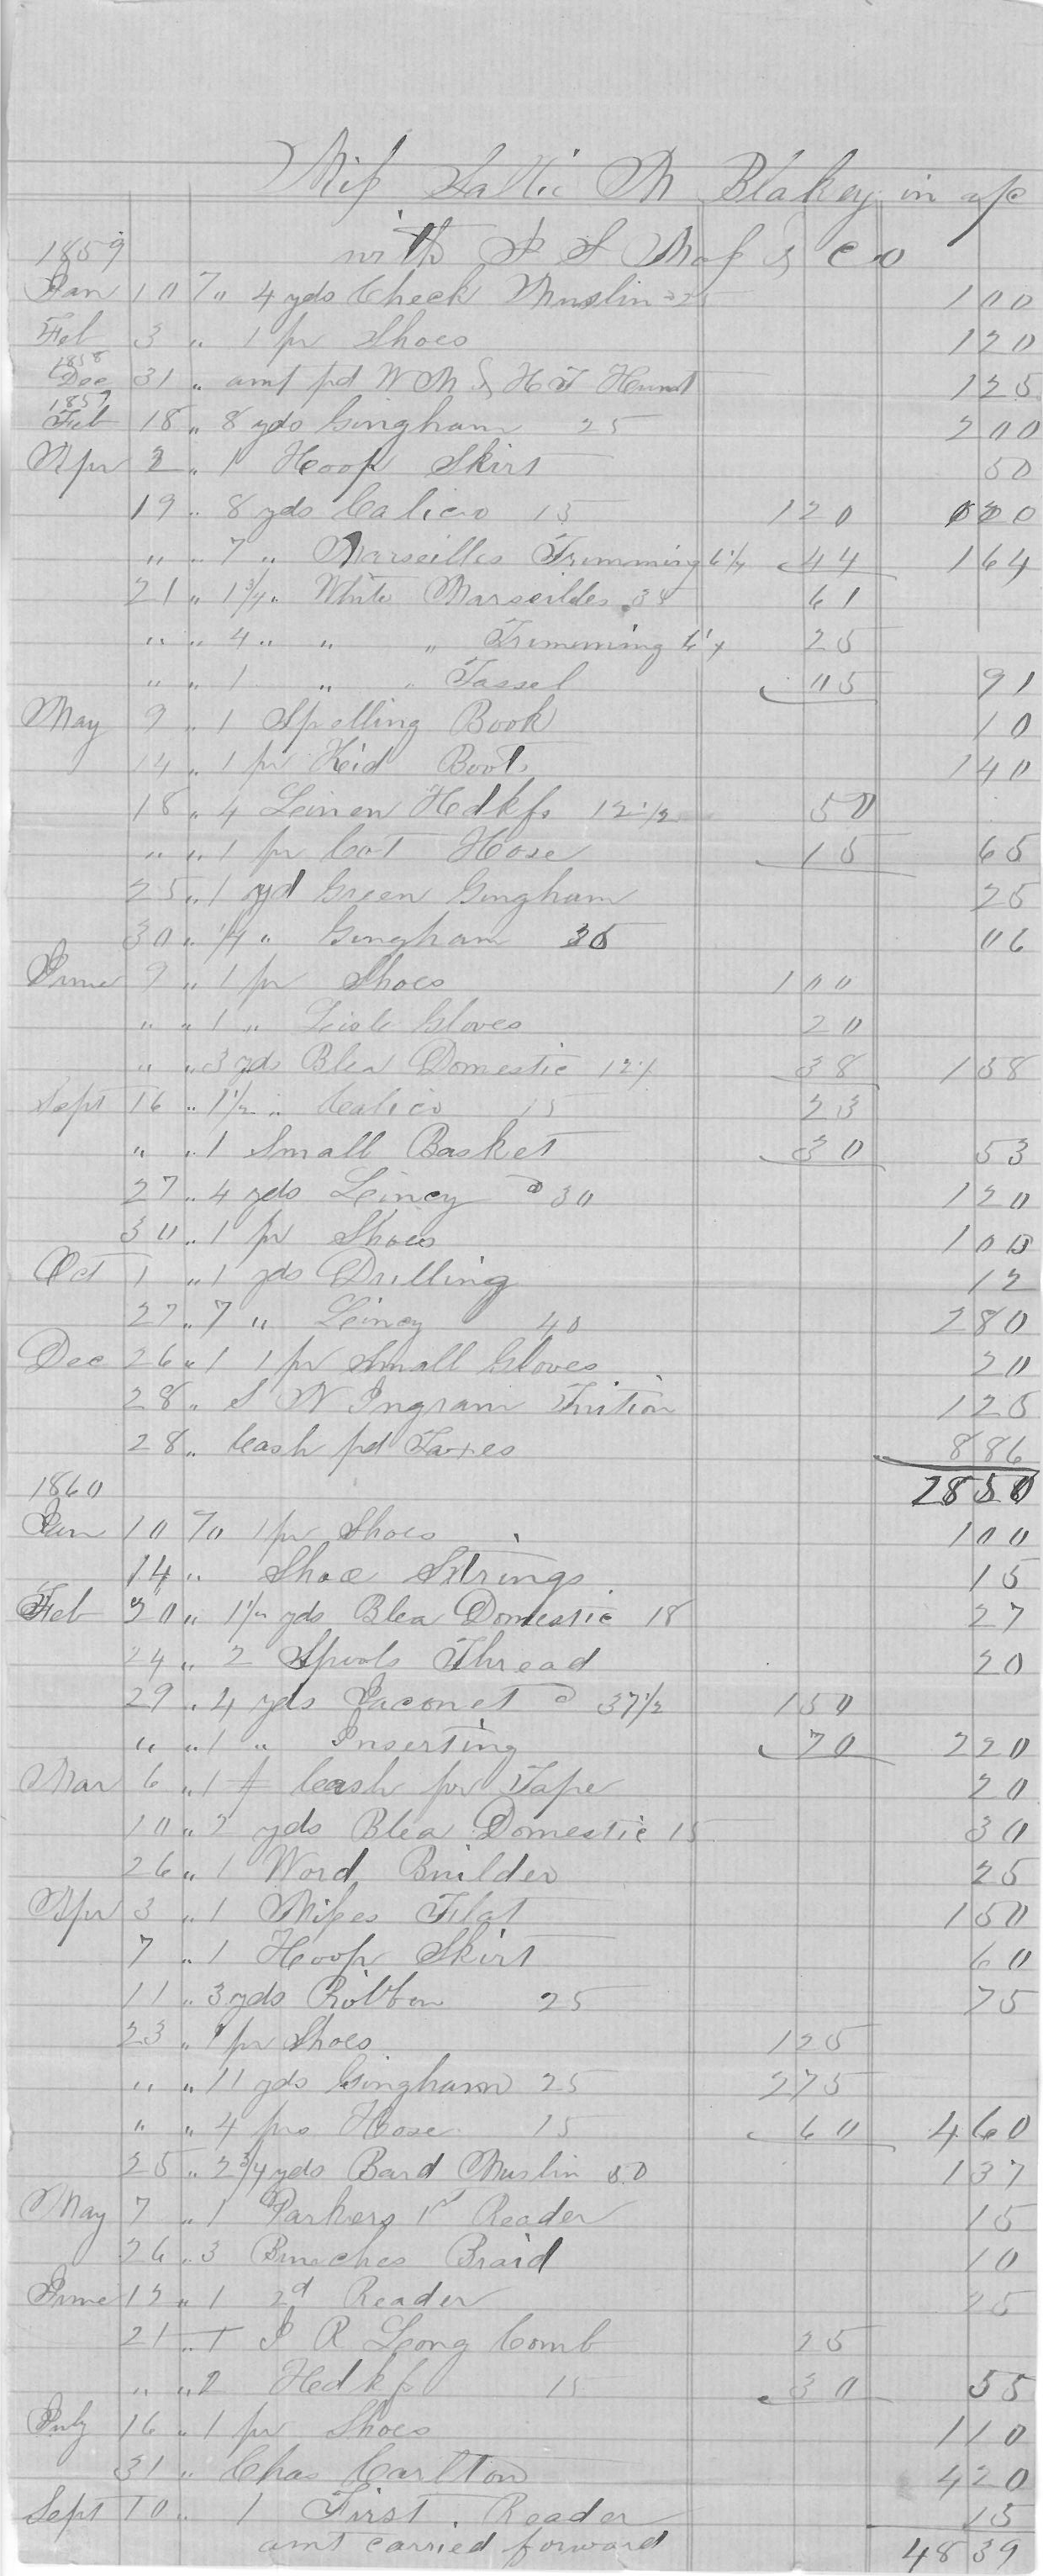 Miss Sallie M Blakey in a/c
with & Co
1859
Jan 10 To 4 yds Check Muslin 25 1 00
Feb 3 " 1 pr Shoes 1 20
1858
Dec 31 " amt pd W M & H T Hunt 1 25
1859
Feb 18 " 8 yds Gingham 25 2 00
Apr 2 " 1 Hoop Skirt 50
19 " 8 yds Calico 15 1 20
" " 7 " Marseilles Trimming 6 1/4 44 1 64
21 " 1 3/4 " White Marseilles 61
" " 4 " " " Trimming 6 1/4 25
" " 1 " " Tassel 05 91
May 9 " 1 Spelling Book 10
14 " 1 pr Kid Boots 1 40
18 " 4 Leinen Hdkfs 12 1/2 50
" " 1 pr Cot Hose 15 65
25 " 1 yd Green Gingham 25
30 " 1/4 " Gingham 06
June 9 " 1 pr Shoes 1 00
" " 1 " Lisle Gloves 20
" " 3 yds Blea Domestic 12 1/2 38 1 58
Sept 16 " 1 1/2 " Calico 15 23
" " 1 Small Basket 30 53
27 " 4 yds Leincy @ 30 1 20
30 " 1 pr Shoes 1 00
Oct 1 " 1 yds Drilling 12
27 " 7 " Leincy 40 2 80
Dec 26 " 1 1 pr Small Gloves 20
28 " S W Ingram Tuition 1 25
28 " Cash pd Taxes 8 86
28 50
1860
Jan 10 To 1 pr Shoes 1 00
14 " Shoe Strings 15
Feb 20 " 1 1/2 yds Blea Domestic 18 27
24 " 2 Spools Thread 20
29 " 4 yds Jaconet @ 37 1/2 1 50
" " 1 " Inserting 70 2 20
Mar 6 " 1 Cash for Tape 20
10 " 2 yds Blea Domestic 15 30
26 " 1 Word Builder 25
Apr 3 " 1 Misses Flat 1 50
7 " 1 Hoop Skirt 60
11 " 3 yds Ribbon 25 75
23 " 1 pr Shoes 1 25
" " 11 yds Gingham 25 2 75
" " 4 prs Hose 15 60 4 60
25 " 2 3/4 yds Bard Muslin 50 1 37
May 7 " 1 Parkers 1st Reader 15
26 " 3 Bunches Braid 10
June 12 " 1 2d Reader 25
21 " 1 I R Long Comb 25
" " 2 Hdkfs 15 30 55
July 16 " 1 pr Shoes 1 10
31 " Chas Carlton 4 20
Sept 10 " 1 First Reader 15
amt carried forward 48 39